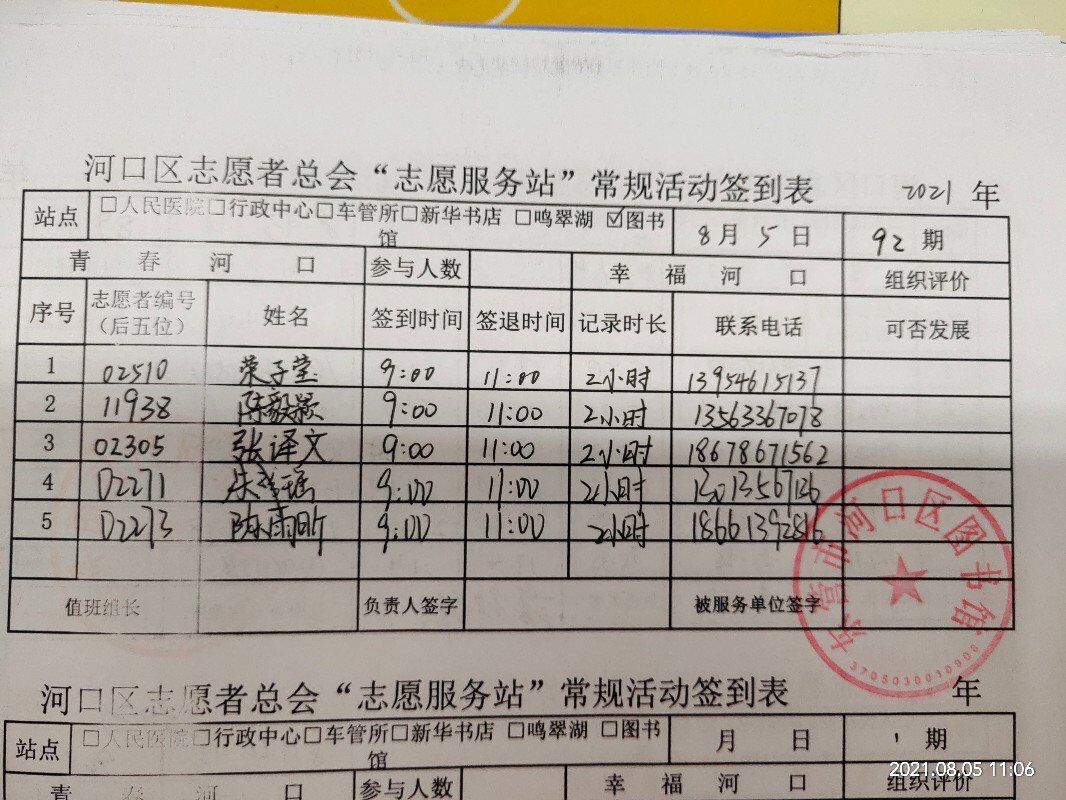 河口区志愿者总会“志愿服务站”常规活动签到表 2021 年
站点 □人民医院□行政中心□车管所□新华书店 □鸣翠湖 ☑图书馆 8月5日 92期
青春河口 参与人数 幸福河口 组织评价
序号 志愿者编号（后五位） 姓名 签到时间 签退时间 记录时长 联系电话 可否发展
1 02510 荣子莹 9:00 11:00 2小时 13954615137
2 11938 陈毅颖 9:00 11:00 2小时 13563367078
3 02305 张译文 9:00 11:00 2小时 18678671562
4 02271 9:00 11:00 2小时
5 02273 陈雨昕 9:00 11:00 2小时 18661392816
值班组长 负责人签字 被服务单位签字
东营市河口区图书馆
3705030010908
河口区志愿者总会“志愿服务站”常规活动签到表 年
站点 □人民医院□行政中心□车管所□新华书店 □鸣翠湖 □图书馆 月 日 期
青春河口 参与人数 幸福河口 组织评价
2021.08.05 11:06